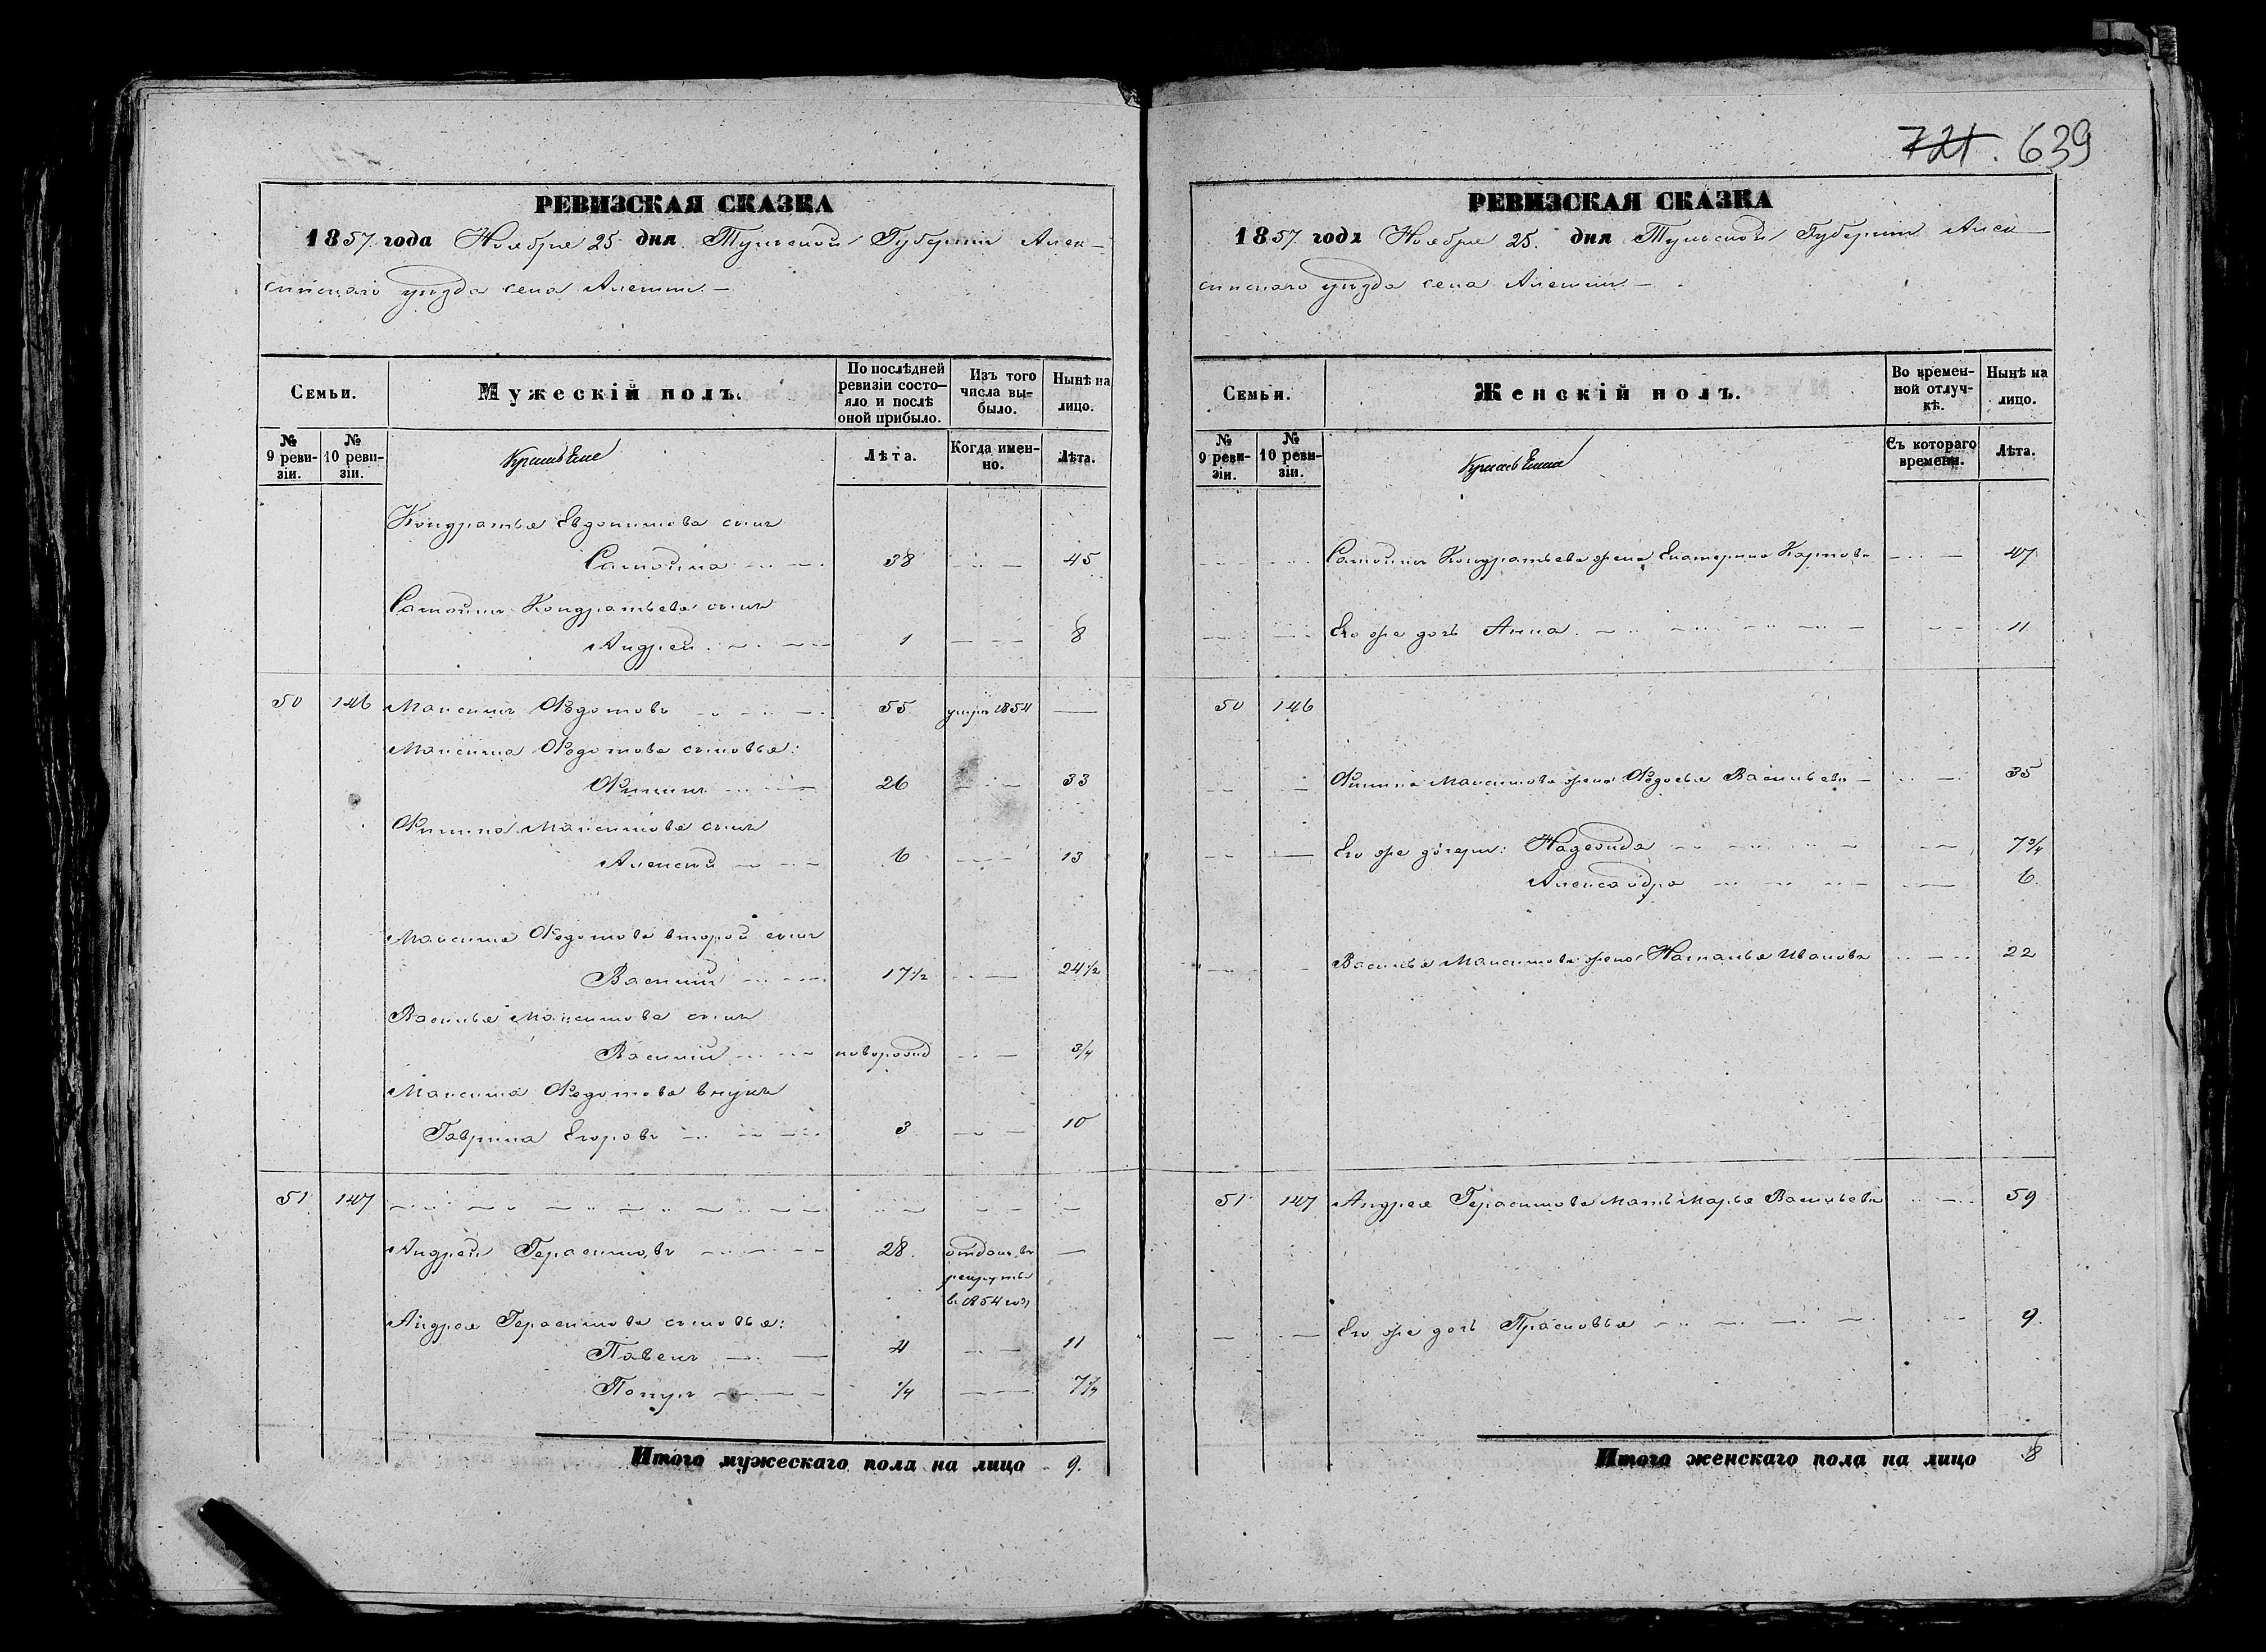 721. 639
РЕВИЗСКАЯ СКАЗКА
1857 года Ноября 25 дня Тульской Губернiи Алек-
синскаго уѣзда села Алешни. —
Семьи.
Мужескiй полъ.
По послѣдней ревизiи состо-яло и послѣ оной прибыло.
Изъ того числа вы-было.
Нынѣ на лицо.
№ 9 реви-зiи.
№ 10 реви-зiи.
Крестьяне
Лѣта.
Когда имен-но.
Лѣта.
Кондратья Евдокимова сынъ
Самойла 38 — 45
Самойлы Кондратьева сынъ
Андрей 1 — 8
50 146 Максимъ Ѳедотовъ 55 умеръ 1854 —
Максима Ѳедотова сыновья:
Филипъ 26 — 33
Филипа Максимова сынъ
Алексей 6 — 13
Максима Ѳедотова второй сынъ
Василий 17½ — 24½
Василья Максимова сынъ
Василий новорожд — ¾
Максима Ѳедотова внукъ
Гаврила Егоровъ 3 — 10
51 147 — — — —
Андрей Герасимовъ 28. отданъ въ —
рекруты
въ 1854 году
Андрея Герасимова сыновья:
Павелъ 4 — 11
¼ — 7¼
Итого мужескаго пола на лицо 9.
РЕВИЗСКАЯ СКАЗКА
1857 года Ноября 25. дня Тульской Губернiи Алек-
синскаго уѣзда села Алешни. —
Семьи.
Женскiй полъ.
Во времен-ной отлуч-кѣ.
Нынѣ на лицо.
№ 9 реви-зiи.
№ 10 реви-зiи.
Крестьяне
Съ котораго времени.
Лѣта.
Самойлы Кондратьева жена Екатерина Карпова — 47
Его же дочь Анна — 11
50 146
Филипа Максимова жена Ѳедосья Васильева — 35
Его же дочери: Надежда — 7¾
Александра — 6.
Василья Максимова жена Наталья Иванова — 22
51 147 Андрея Герасимова мать Марья Васильева — 59
Его же дочь Прасковья — 9.
Итого женскаго пола на лицо 8